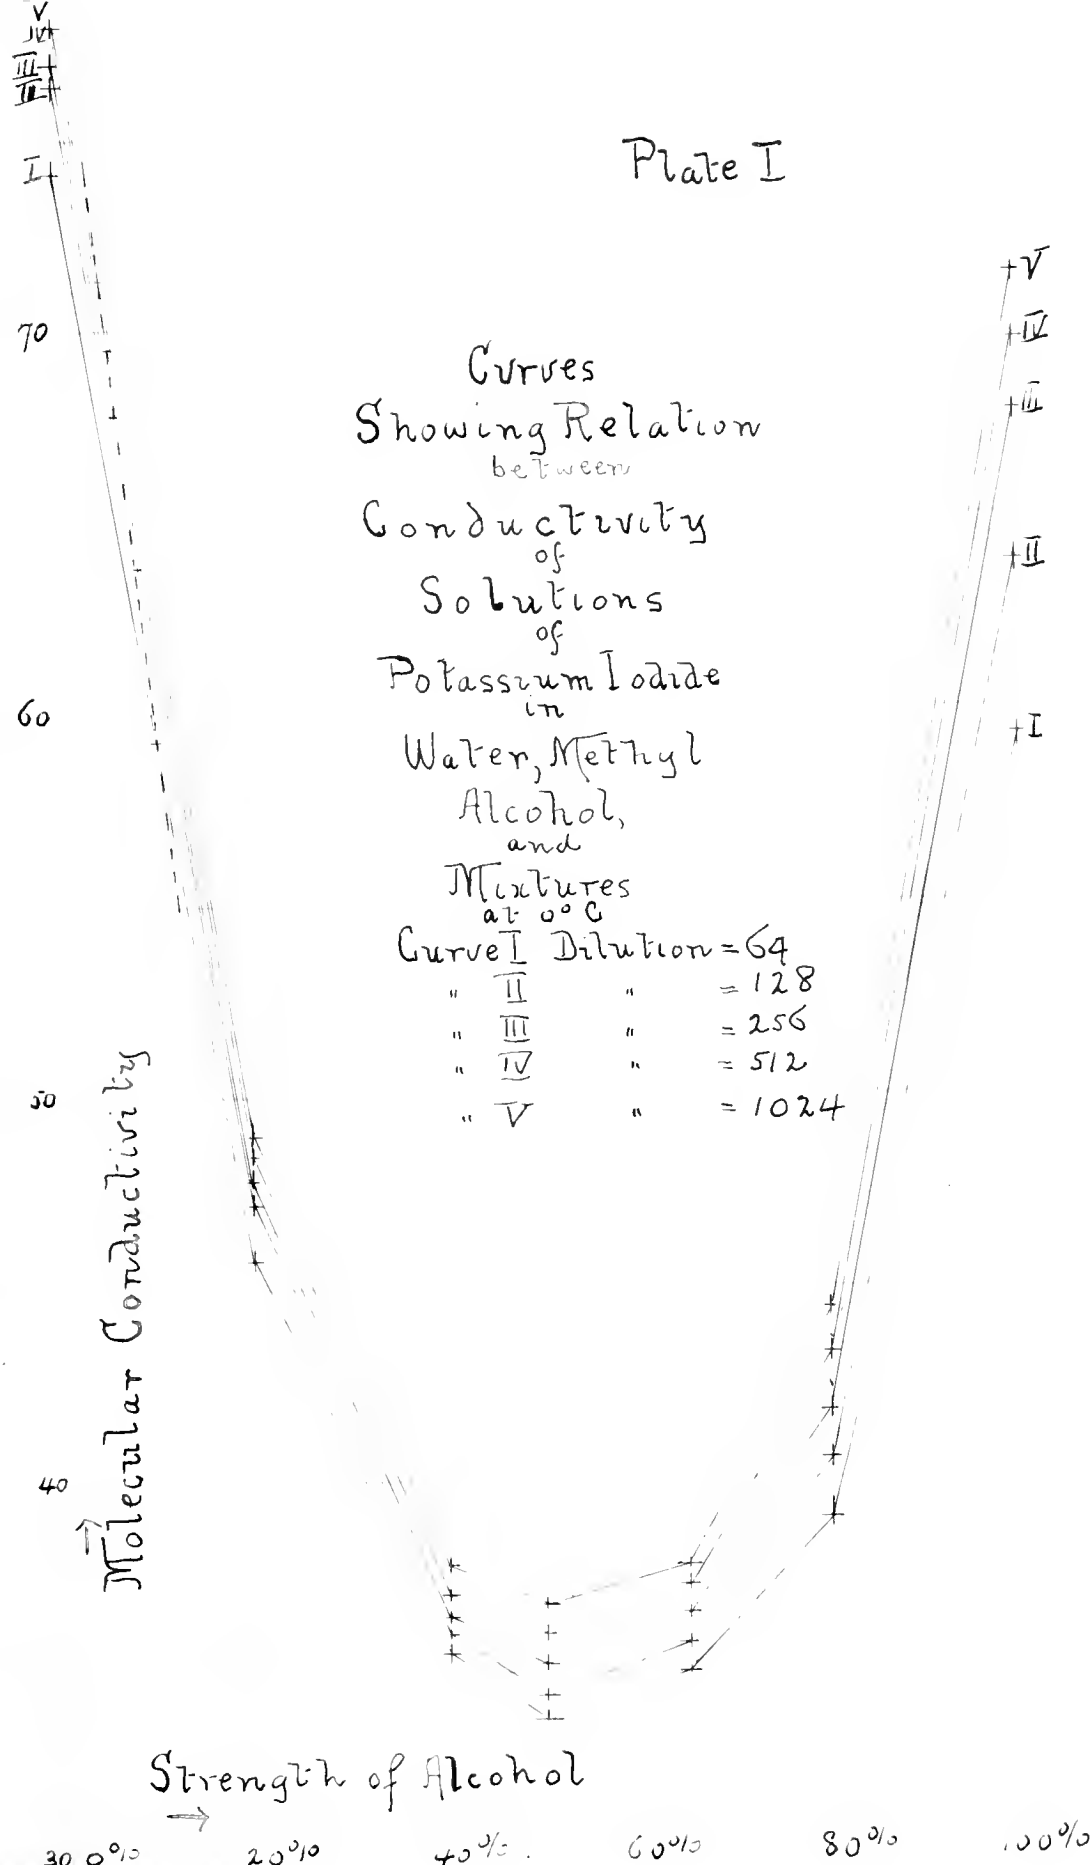 V
IV
III
II
I
Plate I
V
IV
III
II
I
70
60
50
40
Curves
Showing Relation
between
Conductivity
of
Solutions
of
Potassium Iodide
in
Water, Methyl
Alcohol,
and
Mixtures
at 0° C
Curve I Dilution = 64
" II " = 128
" III " = 256
" IV " = 512
" V " = 1024
Molecular Conductivity
Strength of Alcohol
30 0% 20% 40% 60% 80% 100%